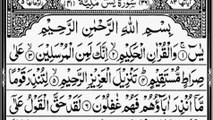 سورة يس مكية
بسم الله الرحمن الرحيم
يس والقرآن الحكيم إنك لمن المرسلين على
صراط مستقيم تنزيل العزيز الرحيم لتنذر قوما
ما أنذر آباؤهم فهم غفلون لقد حق القول على